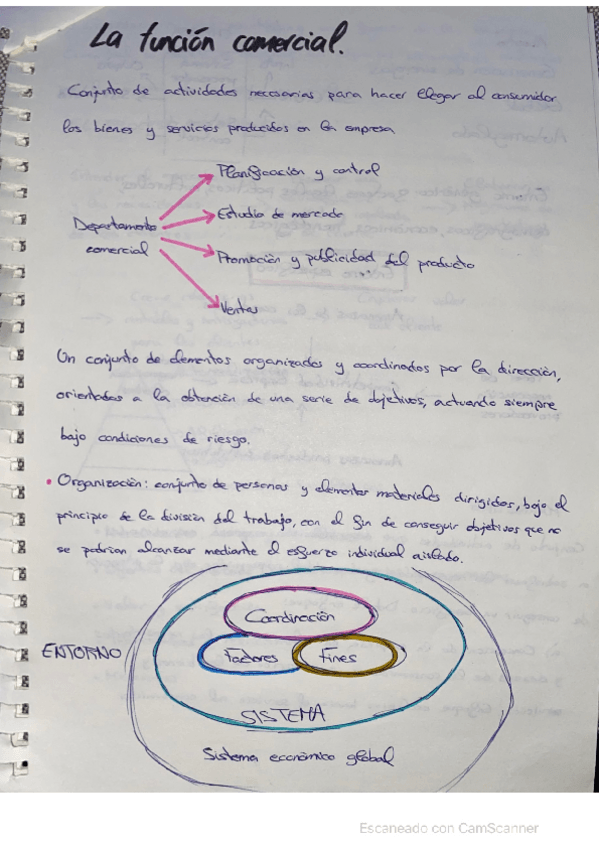 La función comercial.
Conjunto de actividades necesarias para hacer llegar al consumidor
los bienes y servicios producidos en la empresa
Planificación y control
Estudio de mercado
Departamento
comercial
Promoción y publicidad del producto
Ventas
Un conjunto de elementos organizados y coordinados por la dirección,
orientados a la obtención de una serie de objetivos, actuando siempre
bajo condiciones de riesgo.
• Organización: conjunto de personas y elementos materiales dirigidos, bajo el
principio de la división del trabajo, con el fin de conseguir objetivos que no
se podrían alcanzar mediante el esfuerzo individual aislado.
Coordinación
ENTORNO
Factores
Fines
SISTEMA
Sistema económico global
Escaneado con CamScanner